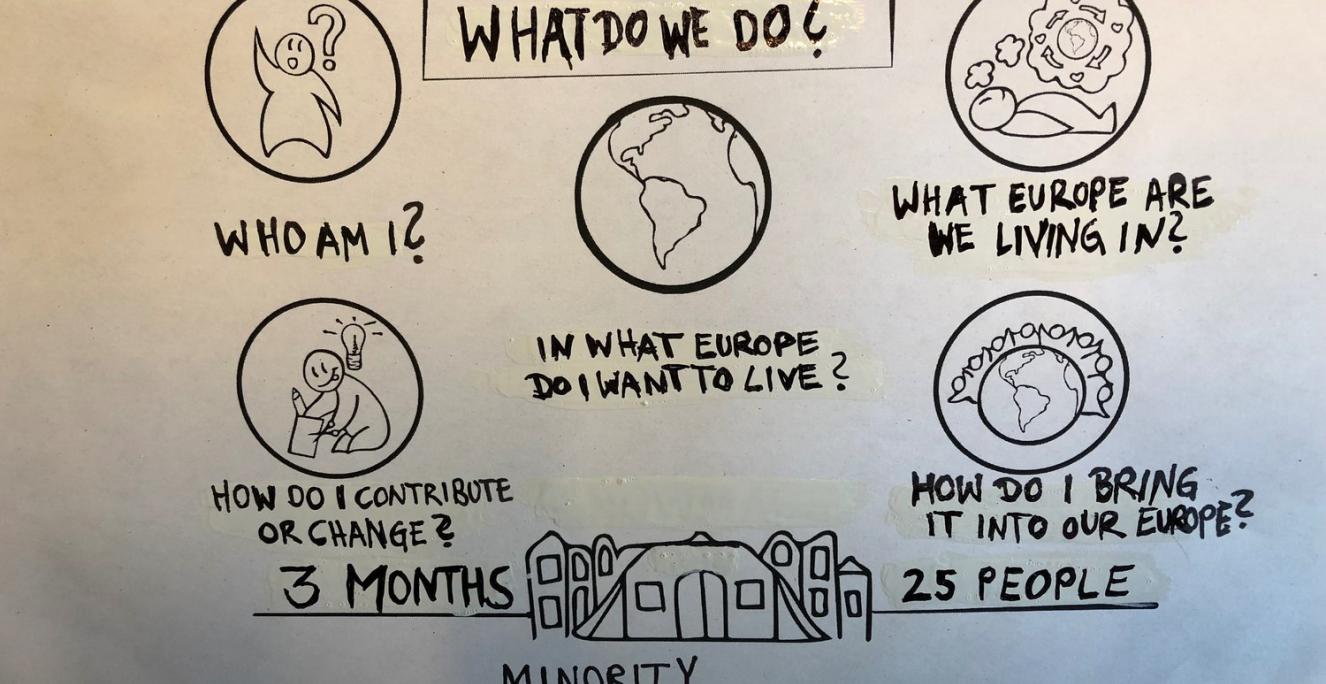 WHAT DO WE DO?
WHO AM I?
WHAT EUROPE ARE
WE LIVING IN?
IN WHAT EUROPE
DO I WANT TO LIVE?
HOW DO I CONTRIBUTE
OR CHANGE?
HOW DO I BRING
IT INTO OUR EUROPE?
3 MONTHS
25 PEOPLE
MINORITY